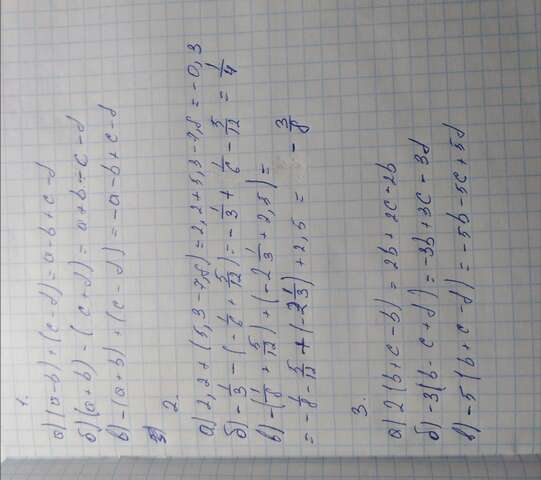 1.
а) (a-b)+(c-d)=a-b+c-d
б) (a+b)-(c+d)=a+b-c-d
в) -(a+b)+(c-d)=-a-b+c-d
2.
а) 2,2+(5,3-7,8)=2,2+5,3-7,8=-0,3
б) -1/3-(-1/6+5/12)=-1/3+1/6-5/12=1/4
в) -(1/8+5/12)+(-2 1/3+2,5)=
=-1/8-5/12+(-2 1/3)+2,5= -3/8
3.
а) 2(b+c-b)=2b+2c-2b
б) -3(b-c+d)=-3b+3c-3d
в) -5(b+c-d)=-5b-5c+5d